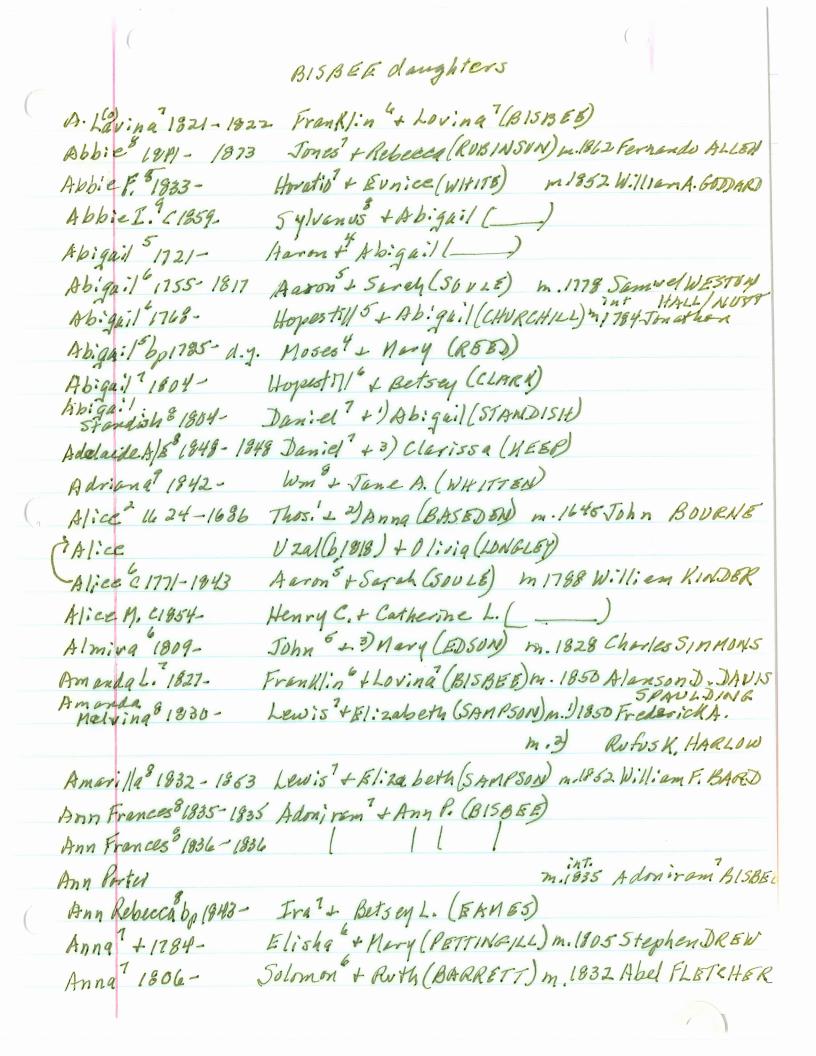 BISBEE daughters
A. La(o)vina⁷ 1821-1822 Franklin⁶ + Lovina⁷ (BISBEE)
Abbie⁸ 1841- 1873 Jones⁷ + Rebecca (ROBINSON) m.1862 Fernando ALLEN
Abbie F.⁸ 1833- Horatio⁷ + Eunice (WHITE) m.1852 William A. GODDARD
Abbie I.⁹ c1859- Sylvanus⁸ + Abigail (____)
Abigail⁵ 1721- Aaron⁴ + Abigail (____)
Abigail⁶ 1755-1817 Aaron⁵ + Sarah (SOULE) m.1778 Samuel WESTON
Abigail⁶ 1768- Hopestill⁵ + Abigail (CHURCHILL) int m 1784 Jonathan HALL/NUTT
Abigail⁵ bp1785- d.y. Moses⁴ + Mary (REED)
Abigail⁷ 1804- Hopestill⁶ + Betsey (CLARK)
Abigail
Standish⁸ 1804- Daniel⁷ + 1) Abigail (STANDISH)
Adelaide A/E⁸ 1848-1848 Daniel⁷ + 3) Clarissa (KEEP)
Adriana⁹ 1842- Wm⁸ + Jane A. (WHITTEN)
Alice² 1624-1686 Thos.¹ + 2) Anna (BASEDEN) m.1645 John BOURNE
? Alice Uzal (b1818) + Olivia (LONGLEY)
Alice⁶ c1771-1843 Aaron⁵ + Sarah (SOULE) m 1788 William KINDER
Alice M. c1854- Henry C. + Catherine L. (____)
Almira⁶ 1809- John⁵ + 3) Mary (EDSON) m. 1828 Charles SIMMONS
Amanda L.⁷ 1827- Franklin⁶ + Lovina⁷ (BISBEE) m. 1850 Alanson D. DAVIS
Amanda
Melvina⁸ 1830- Lewis⁷ + Elizabeth (SAMPSON) m.1) 1850 Frederick A. SPAULDING
m.2) Rufus K. HARLOW
Amarilla⁸ 1832-1863 Lewis⁷ + Elizabeth (SAMPSON) m.1852 William F. BARD
Ann Frances⁸ 1835-1835 Adoniram⁷ + Ann P. (BISBEE)
Ann Frances⁸ 1836-1836 | | | |
Ann Porter int. m.1835 Adoniram⁷ BISBEE
Ann Rebecca⁸ bp1843- Ira⁷ + Betsey L. (EAMES)
Anna⁷ + 1784- Elisha⁶ + Mary (PETTINGILL) m.1805 Stephen DREW
Anna⁷ 1806- Solomon⁶ + Ruth (BARRETT) m.1832 Abel FLETCHER